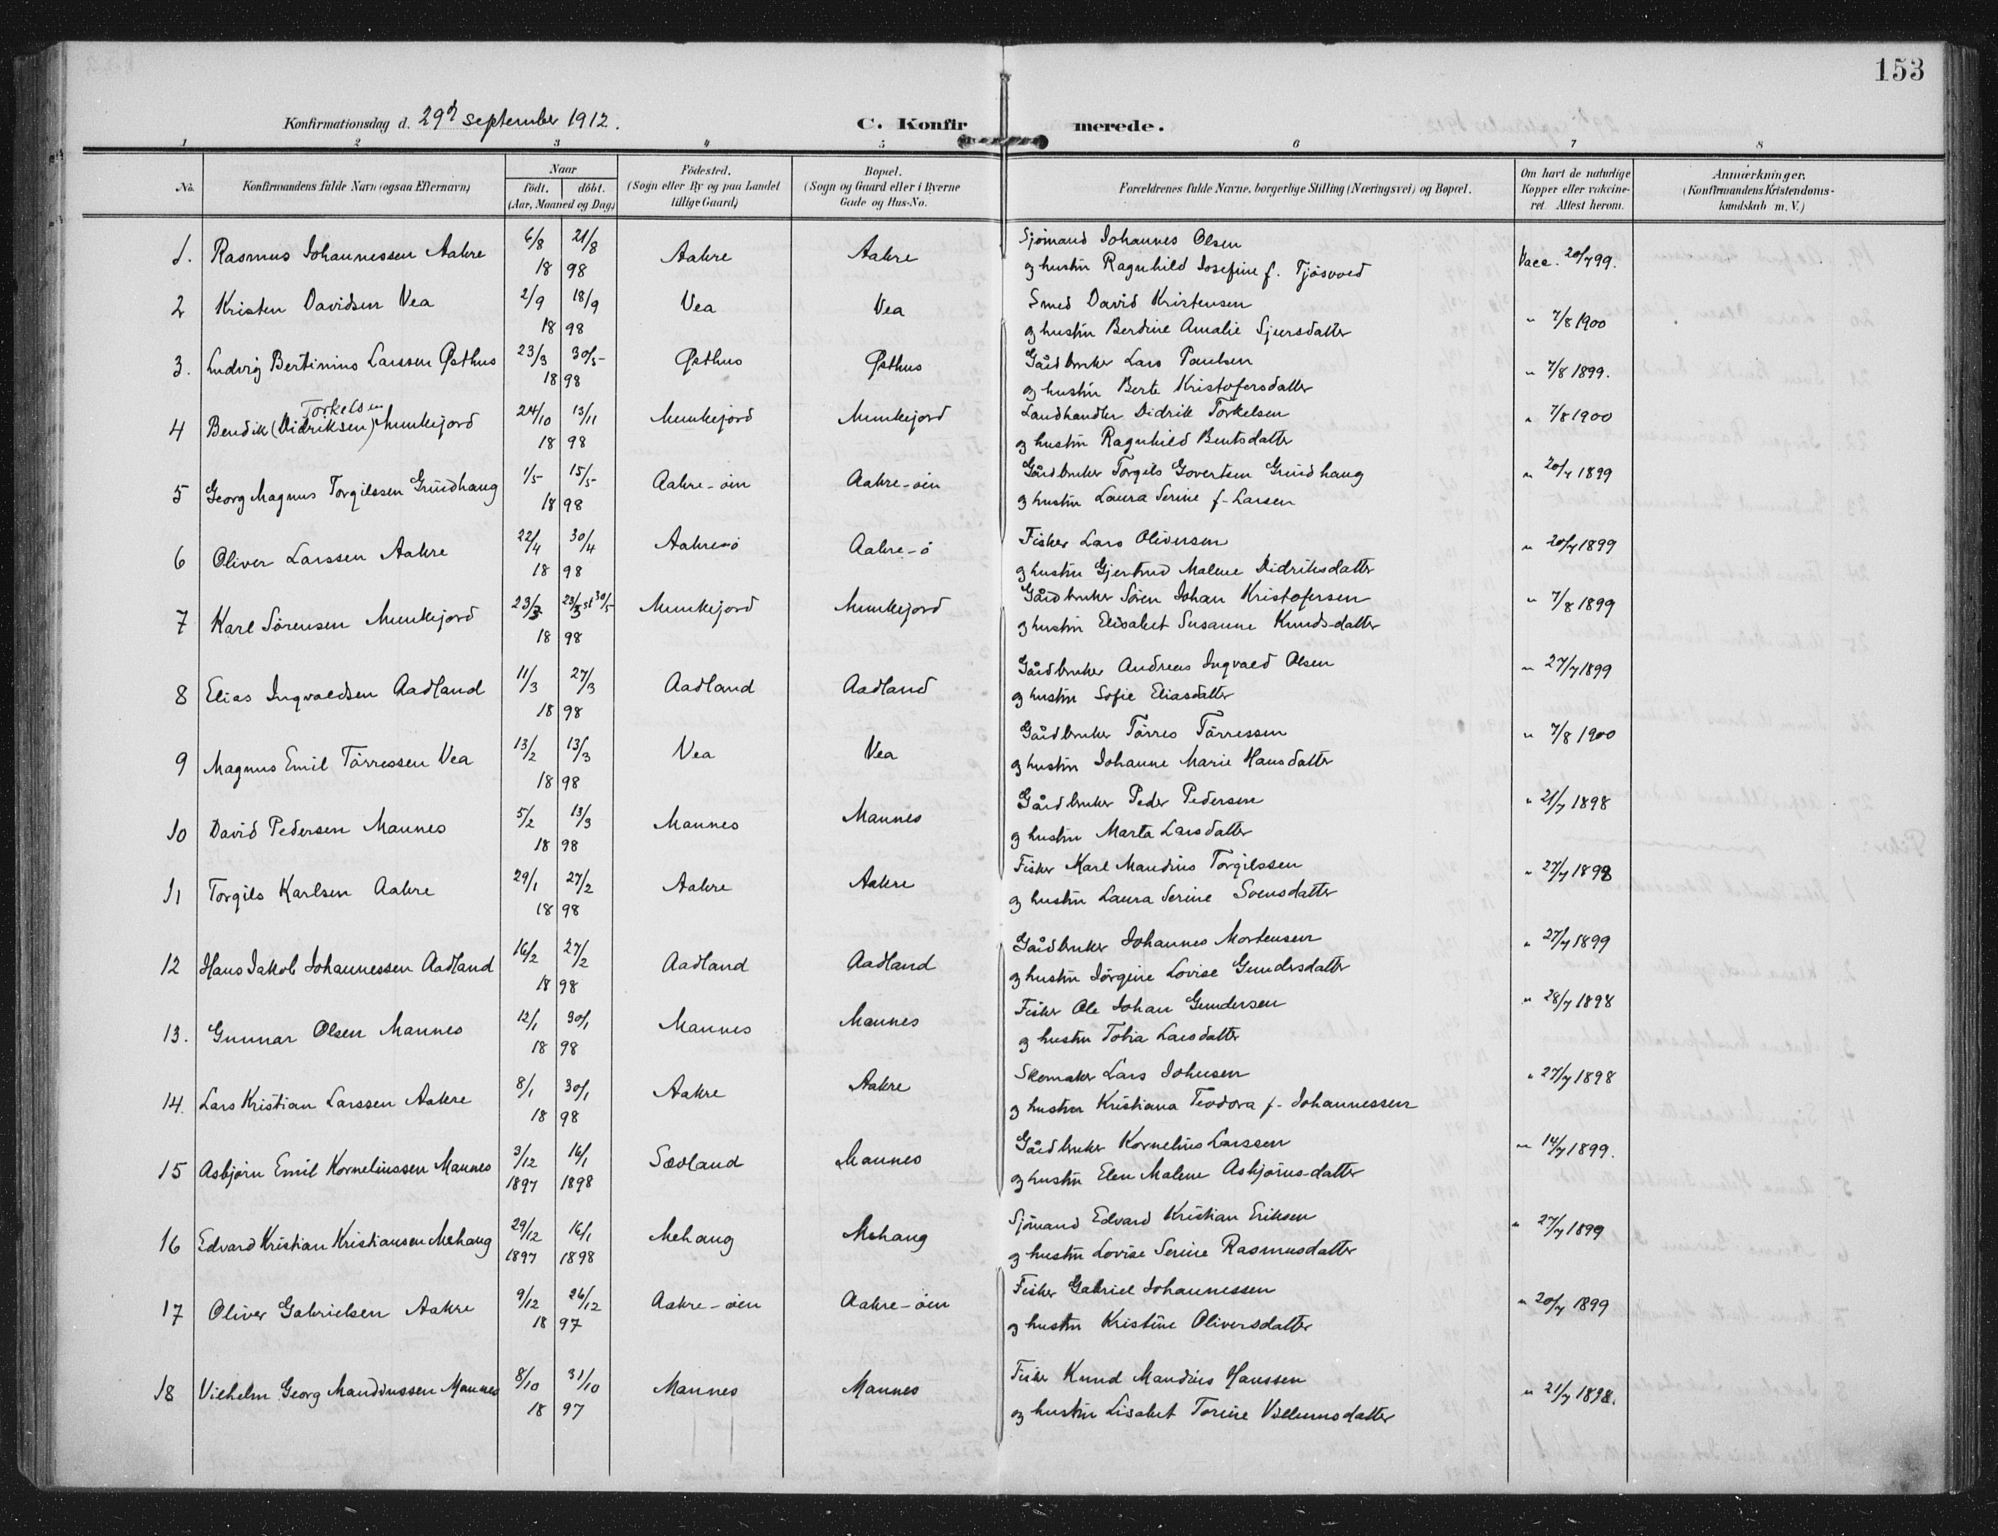 153
Konfirmationsdag d. 29d september 1912.
C. Konfirmerede.
1 2 3 4 5 6 7 8
No. Konfirmandens fulde Navn (ogsaa Efternavn) Naar födt. döbt. (Aar, Maaned og Dag) Födested. (Sogn eller By og paa Landet tillige Gaard) Bopæl. (Sogn og Gaard eller i Byerne Gade og Hus-No. Forældrenes fulde Navne, borgerlige Stilling (Næringsvei) og Bopæl. Om havt de naturlige Kopper eller vakcineret. Attest herom. Anmærkninger. (Konfirmandens Kristendomskundskab m. V.)
1. Rasmus Johannessen Aakre 6/8 21/8 1898 Aakre Aakre Sjömand Johannes Olsen
og hustru Ragnhild Josefine f. Tjösvold Vacc. 20/7 99.
2 Kristen Davidsen Vea 2/9 18/9 1898 Vea Vea Smed David Kristensen
og hustru Berdine Amalie Sjursdatter " 7/8 1900
3. Ludvig Bertinius Larssen Østhus 23/3 30/5 1898 Østhus Østhus Gårdbruker Lars Paulsen
og hustru Berte Kristofersdatter " 7/8 1899.
4 Bendik (Didriksen) Torkelsen Munkejord 24/10 13/11 1898 Munkejord Munkejord Landhandler Didrik Torkelsen
og hustru Ragnhild Bentsdatter " 7/8 1900
5 Georg Magnus Torgilssen Grindhaug 1/5 15/5 1898 Aakre-öen Aakre-öen Gårdbruker Torgils Govertsen Grindhaug
og hustru Laura Serine f. Larsen " 20/7 1899
6 Oliver Larssen Aakre 22/4 30/4 1898 Aakre-ö Aakre-ö Fisker Lars Oliversen
og hustru Gjertrud Malene Didriksdatter " 20/7 1899
7 Karl Sörensen Munkejord 23/3 23/3 st 30/5 1898 Munkejord Munkejord Gårdbruker Sören Johan Kristofersen
og hustru Elisabet Susanne Knuds-datter " 7/8 1899
8 Elias Ingvaldsen Aadland 11/3 27/3 1898 Aadland Aadland Gårdbruker Andreas Ingvald Olsen
og hustru Sofie Eliasdatter " 27/7 1899
9 Magnus Emil Törressen Vea 13/2 13/3 1898 Vea Vea Gårdbruker Törres Törressen
og hustru Johanne Marie Hansdatter " 7/8 1900
10 David Pedersen Mannes 5/2 13/3 1898 Mannes Mannes Gårdbruker Peder Pedersen
og hustru Marta Larsdatter " 21/7 1898
11 Torgils Karlsen Aakre 29/1 27/2 1898 Aakre Aakre Fisker Karl Mandius Torgilssen
og hustru Laura Serine Svensdatter " 27/7 1898
12 Hans Jakob Johannessen Aadland 16/2 27/2 1898 Aadland Aadland Gårdbruker Johannes Mortensen
og hustru Jörgine Lovise Gundersdatter " 27/7 1899
13. Gunnar Olsen Mannes 12/1 30/1 1898 Mannes Mannes Fisker Ole Johan Gundersen
og hustru Tobia Larsdatter " 28/7 1898
14. Lars Kristian Larssen Aakre 8/1 30/1 1898 Aakre Aakre Skomaker Lars Johnsen
og hustru Kristiana Teodora f. Johannessen " 27/7 1898
15 Asbjörn Emil Korneliussen Mannes 3/12 1897 16/1 1898 Sædland Mannes Gårdbruker Kornelius Larssen
og hustru Elen Malene Asbjörns-datter " 14/7 1899.
16 Edvard Kristian Kristiansen Mehaug 29/12 1897 16/1 1898 Mehaug Mehaug Sjömand Edvard Kristian Eriksen
og hustru Lovise Serine Rasmusdatter " 27/7 1899
17 Oliver Gabrielsen Aakre 9/12 26/12 1897 Aakre-öen Aakre-öen Fisker Gabriel Johannessen
og hustru Kristine Oliversdatter " 20/7 1899
18 Vilhelm Georg Mandiussen Mannes 8/10 31/10 1897 Mannes Mannes Fisker Knud Mandius Hanssen
og hustru Lisabet Torine Villumsdatter " 21/7 1898.